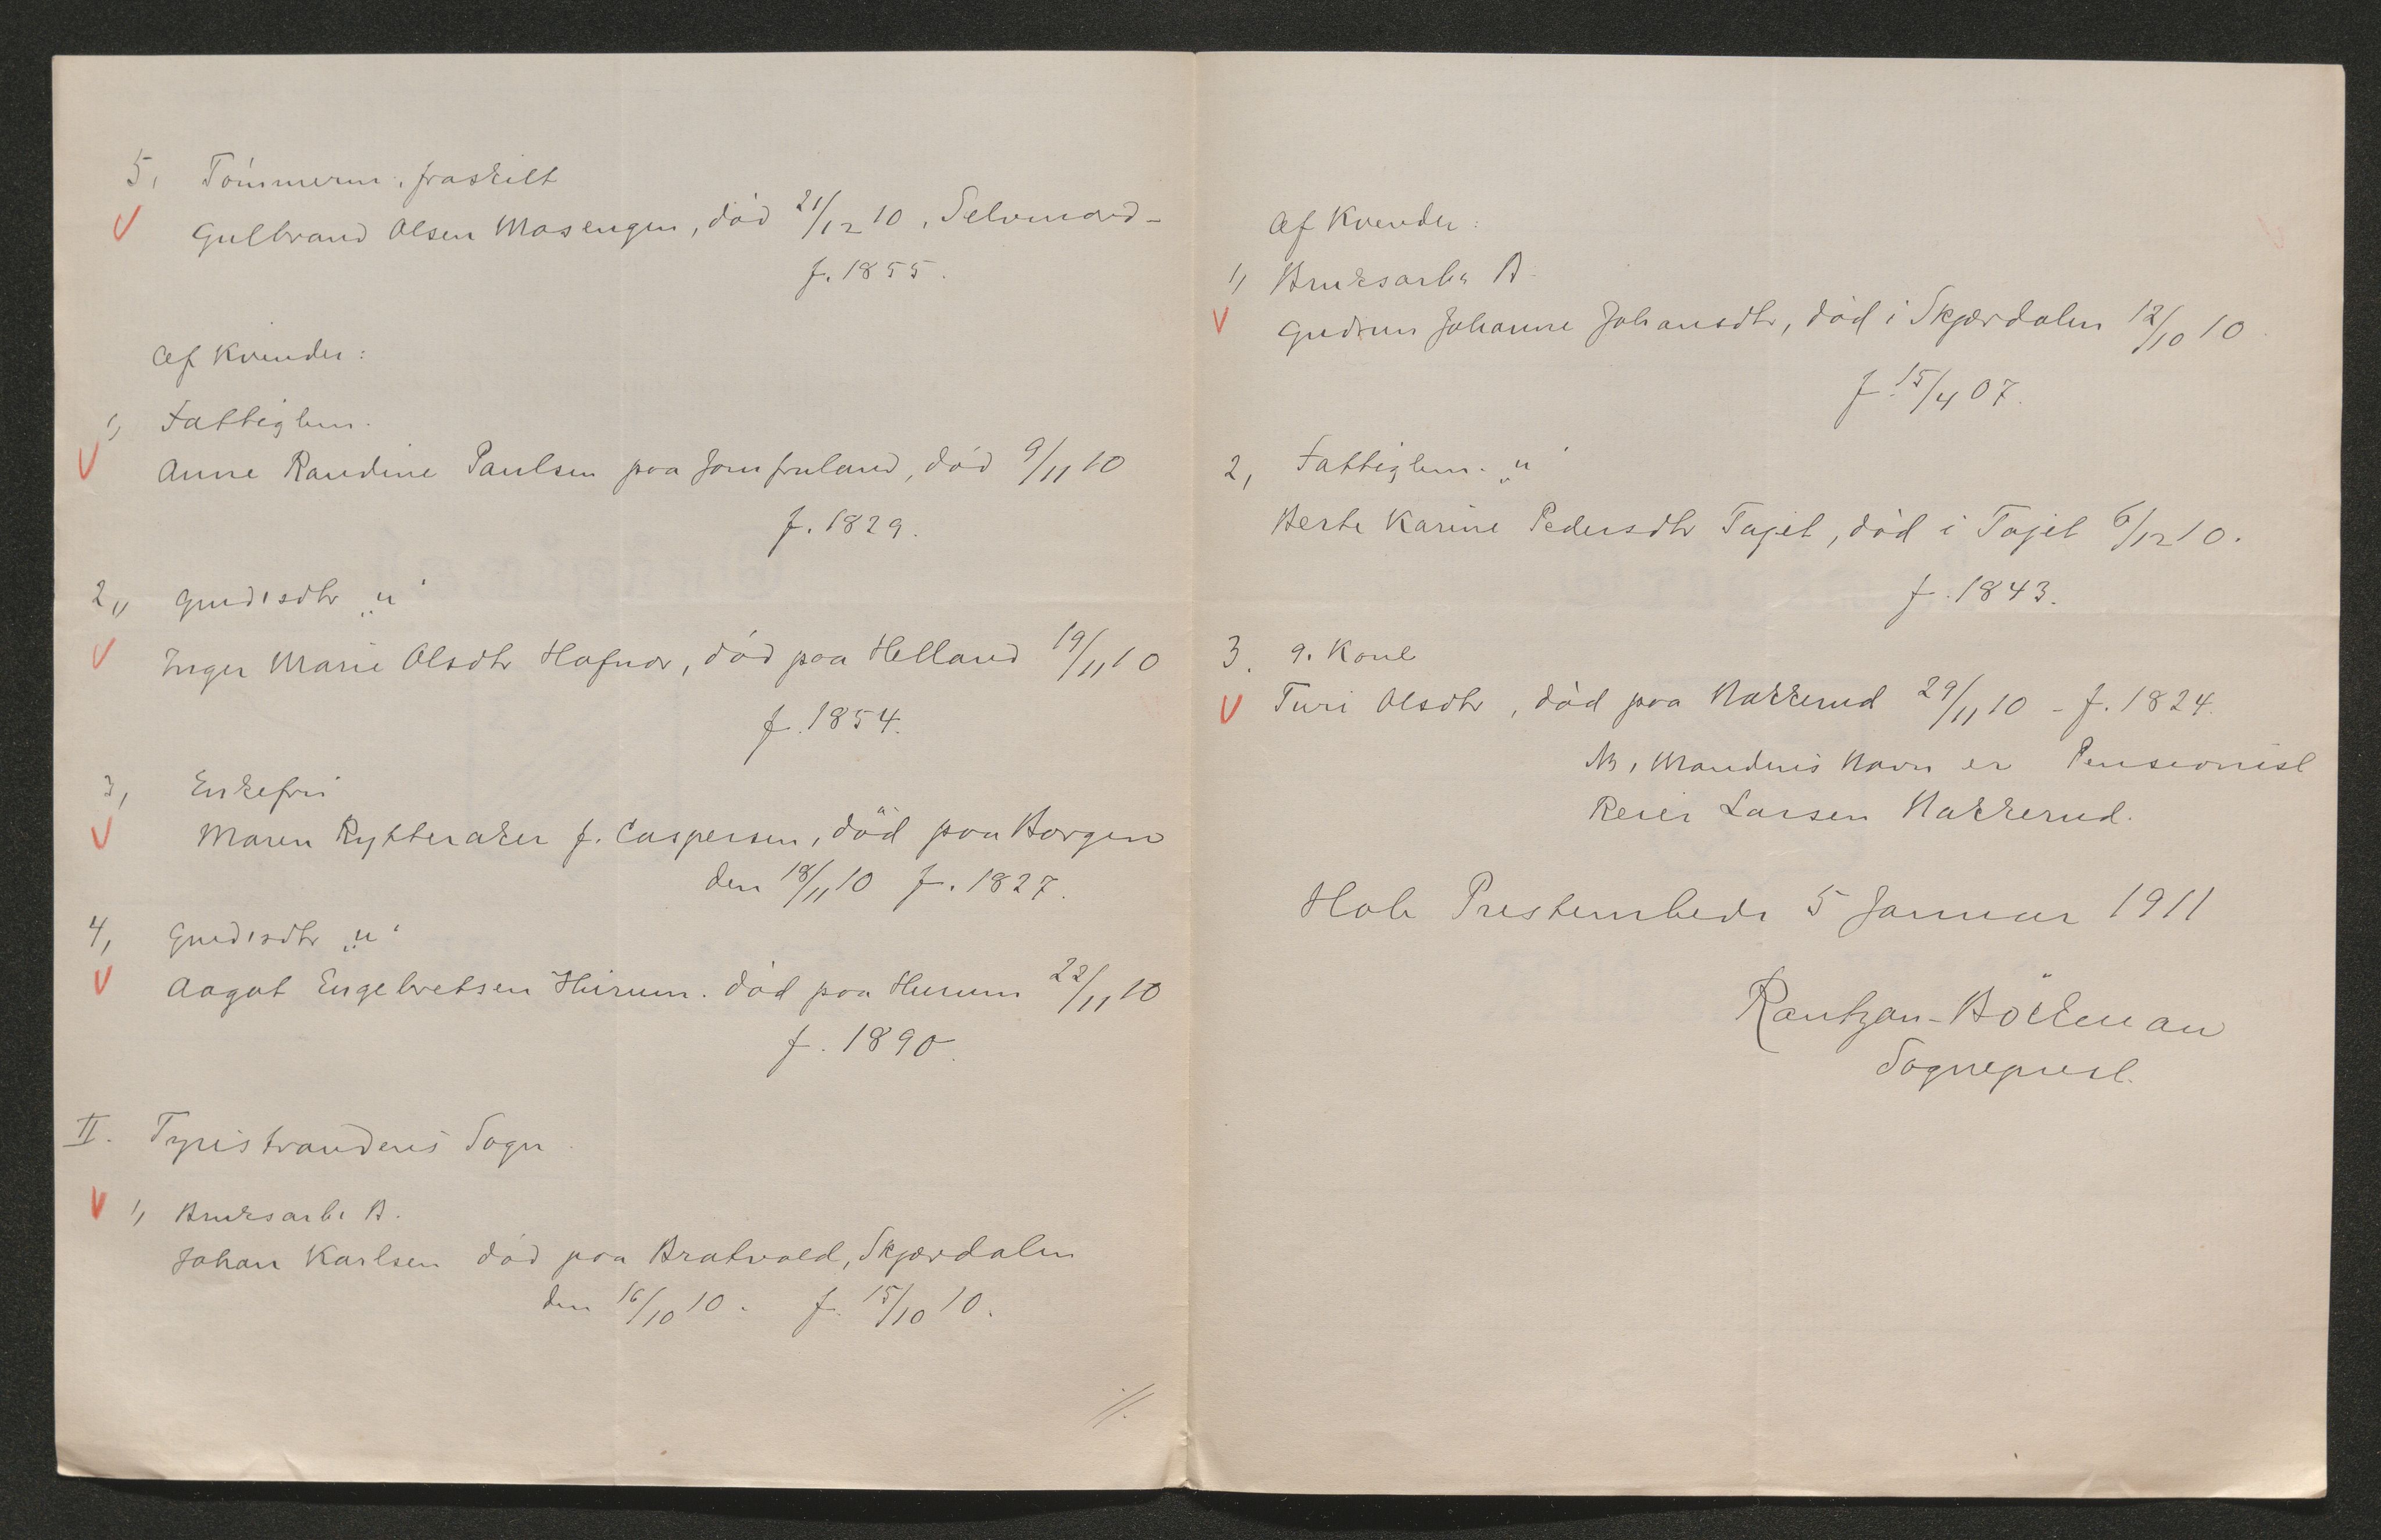 5, Tømmerm. fraskilt
Gulbrand Olsen Mosengen, død 21/12 10, Selvmord-
f. 1855.
Af Kvinder:
1, Fattiglem.
Anne Randine Paulsen paa Jomfruland, død 9/11 10
f. 1829.
2,, Grdisdtr „u"
Inger Marie Olsdtr Hafnor, død paa Helland 19/11 10
f. 1854.
3, Enkefru
Maren Rytteraker f. Caspersen, död paa Borgen
den 18/11 10 f. 1827.
4, Grdisdtr „u"
Aagot Engebretsen Hurum. død paa Hurum 22/11 10
f. 1890.
II. Tyristrandens Sogn
1, Bruksarb. B.
Johan Karlsen død paa Bratvold, Skjærdalen
den 16/10 10. f. 15/10 10.
//.
Af Kvinder:
1, Bruksarb. B
Gudrun Johanne Johansdtr, død i Skjærdalen 12/10 10
f. 15/4 07.
2, Fattiglem. „u"
Berte Karine Pedersdtr Tajet, død i Tajet 6/12 10.
f. 1843.
3. g. Kone
Turi Olsdtr, død paa Nakkerud 29/11 10 - f. 1824.
NB, Mandens Navn er Pensionist
Reier Larsen Nakkerud.
Hole Prestembede 5 Januar 1911
Rantzau-Böckman
Sogneprest.